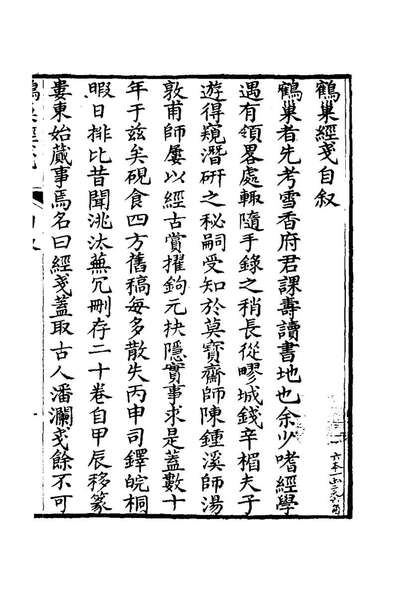 鶴巢經戔自叙
鶴巢者先考雪香府君課壽讀書地也余少嗜經學
遇有領畧處輒隨手錄之稍長從疁城錢辛楣夫子
遊得窺潛研之秘嗣受知於莫寶齋師陳鍾溪師湯
敦甫師屢以經古賞擢鉤元抉隱實事求是蓋數十
年于兹矣硯食四方舊稿每多散失丙申司鐸皖桐
暇日排比昔聞洮汰蕪冗刪存二十卷自甲辰移篆
婁東始蕆事焉名曰經戔蓋取古人潘瀾戔餘不可